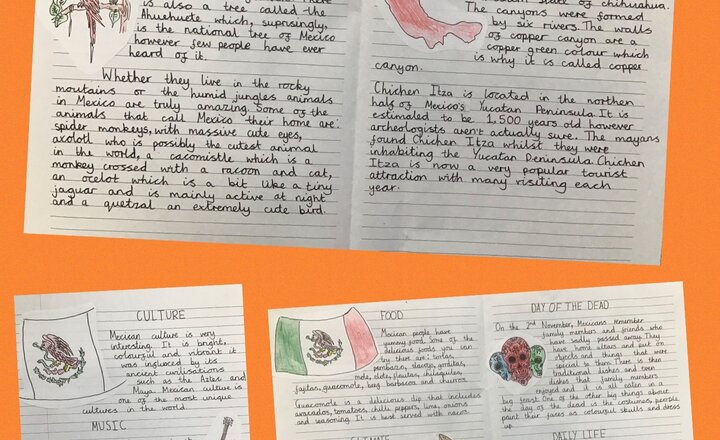 is also a tree called the
Ahuehuete which, suprisingly,
is the national tree of Mexico
however few people have ever
heard of it.
Whether they live in the rocky
moutains or the humid jungles animals
in Mexico are truly amazing. Some of the
animals that call Mexico their home are:
spider monkeys, with massive cute eyes,
axolotl who is possibly the cutest animal
in the world, a cacomistle which is a
monkey crossed with a racoon and cat,
an ocelot which is a bit like a tiny
jaguar and is mainly active at night
and a quetzal an extremely cute bird.
state of chihuahua.
The canyons were formed
by six rivers. The walls
of copper canyon are a
copper green colour which
is why it is called copper
canyon.
Chichen Itza is located in the northen
half of Mexico's Yucatan Peninsula. It is
estimaled to be 1,500 years old however
archeologists aren't actually sure. The mayans
found Chichen Itza whilst they were
inhabiting the Yucatan Peninsula. Chichen
Itza is now a very popular tourist
attraction with many visiting each
year.
CULTURE
Mexican culture is very
interesting. It is bright,
colourful and vibrant it
was influenced by its
ancient civilisations
such as the Aztec and
Maya. Mexican culture is
one of the most unique
cultures in the world.
MUSIC
FOOD
Mexican people have
yummy food. Some of the
delicious foods you can
try there are: tortas,
pembazo, tlavoyo, gorditas,
mole, elote, flautas, chilaquiles,
fajitas, guacomole, beef barbacoa and churros.
Guacomole is a delicious dip that includes
avocados, tomatoes, chilli peppers, lime, onions
and seasoning. It is best served with nacos.
CLIMATE
DAY OF THE DEAD
On the 2nd November, Mexicans remember
family members and friends who
have sadly passed away. They
have home altars and put on
objects and things that were
special to them. There is then
traditional dishes and even
dishes that family members
enjoyed and it is all eaten in a
big feast. One of the other big things about
the day of the dead is the costumes, people
paint their faces as colourful skulls and dress
up.
DAILY LIFE